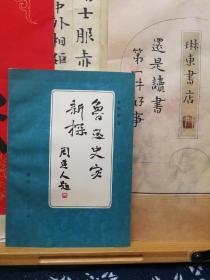 士服赤
中外
琳東書店
還是讀書
第一件好事
魯迅史实
新探
周建人題